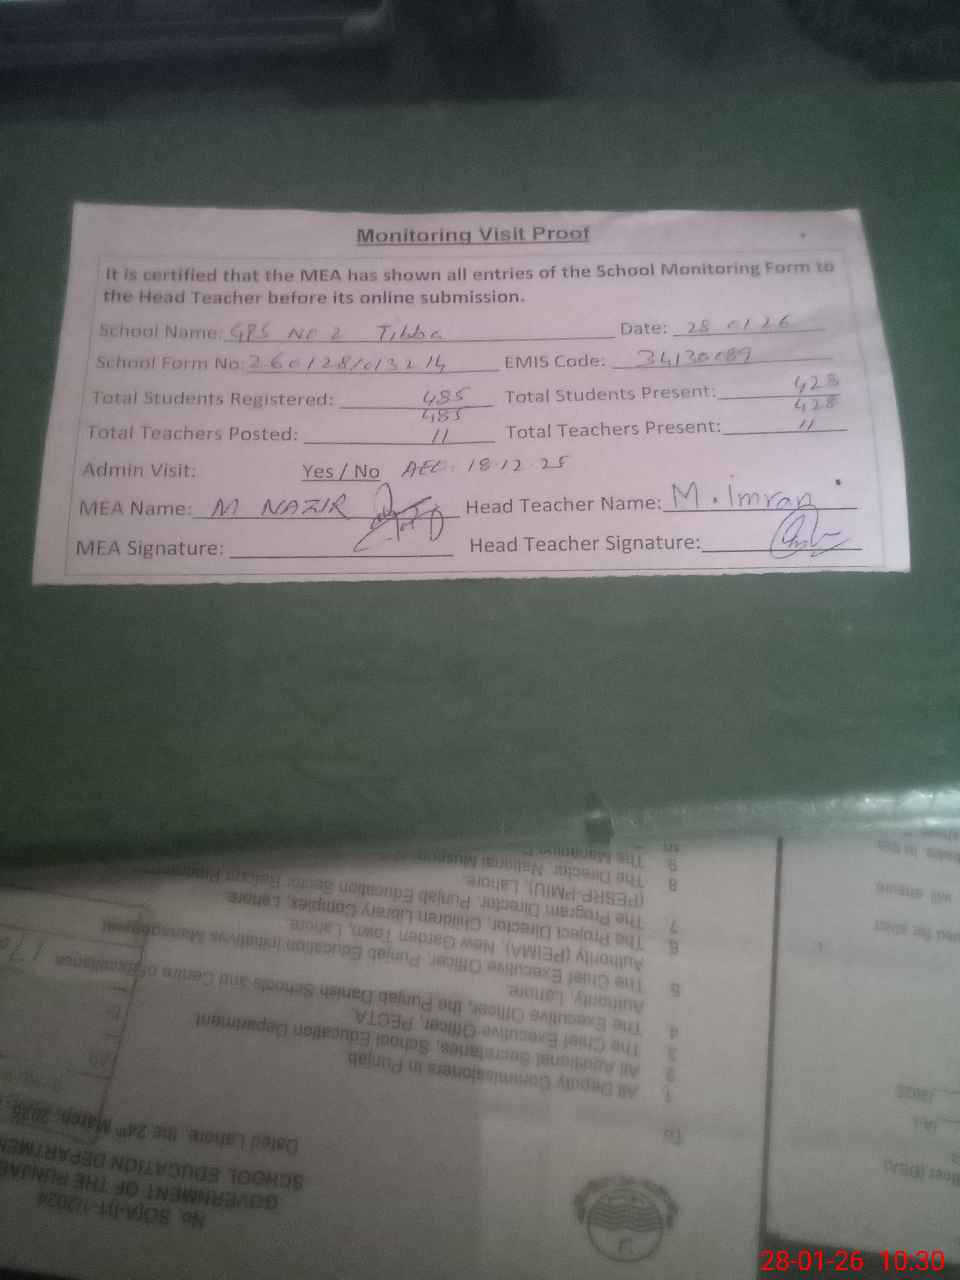 Monitoring Visit Proof
It is certified that the MEA has shown all entries of the School Monitoring Form to
the Head Teacher before its online submission.
School Name: GPS No 2 Tibba Date: 28 01 26
School Form No: 260128/013214 EMIS Code: 34130089
Total Students Registered: 485 Total Students Present: 428
485 428
Total Teachers Posted: 11 Total Teachers Present: 11
Admin Visit: Yes / No AEO. 18.12.25
MEA Name: M NAZIR Head Teacher Name: M. Imran
MEA Signature: Head Teacher Signature:
No. SO(A-I)
GOVERNMENT OF THE PUNJAB
SCHOOL EDUCATION DEPARTMENT
Dated Lahore, the 24th March,
To
1 All Deputy Commissioners in Punjab
2 All Additional Secretaries, School Education Department
3 The Chief Executive Officer, PECTA
4 The Executive Officer, the Punjab Danish Schools and Centre of Excellence
Authority, Lahore.
5 The Chief Executive Officer, Punjab Education Initiatives Management
Authority (PEIMA), New Garden Town, Lahore
6 The Project Director, Children Library Complex, Lahore.
7 The Program Director, Punjab Education Sector Reform Programme
(PESRP-PMIU), Lahore.
8 The Director, National Museum
9 The Managing
28-01-26 10:30